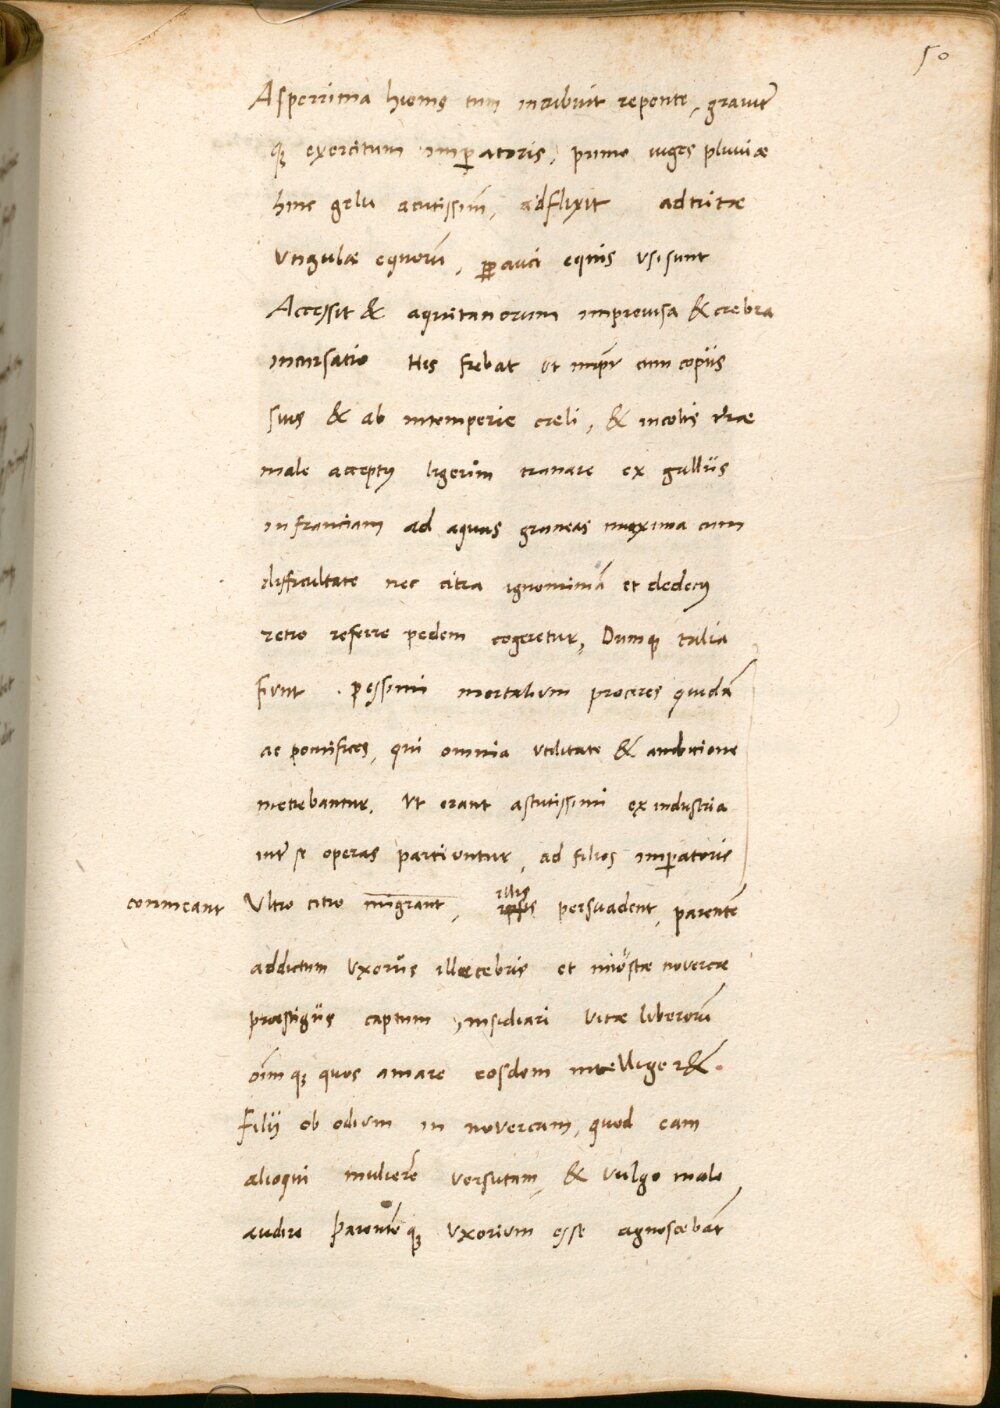 50
Asperrima hiems tum incubuit repente, grauit̃
q̃ exercitum imꝑatoris, primo iuges pluuiæ
hinc gelu acutissim̃, adflixit adtritæ
Vngulæ equorũ, ꝑpauci equis usi sunt
Accessit & aquitanorum improuisa & crebra
incursatio His fiebat ut imp̃r cum copiis
suis & ab intemperie cæli, & incolis t̃ræ
male acceptꝰ ligerim tranare ex galliis
in franciam ad aquas graneas maxima cum
difficultate nec citra ignominiã et dedecꝰ
retro referre pedem cogeretur, Dumq̃ talia
fiunt . pessimi mortalium proceres quidã
ac pontifices, qui omnia utilitate & ambitione
metiebantur, Vt erant astutissimi ex industria
int̃ se operas partiuntur, ad filios imꝑatoris
conmeant Vltro citro migrant, illis ipsis persuadent, parentẽ
addictum Vxoriis illecebris et iniustæ nouercæ
præstigiis captum, insidiari uitæ liberorũ
oĩmq̃ quos amare eosdem intelliger&.
Filij ob odium in nouercam, quod eam
alioqui mulierẽ uersutam, & uulgo male
audire Parentẽq̃ Vxorium esse agnoscebãt